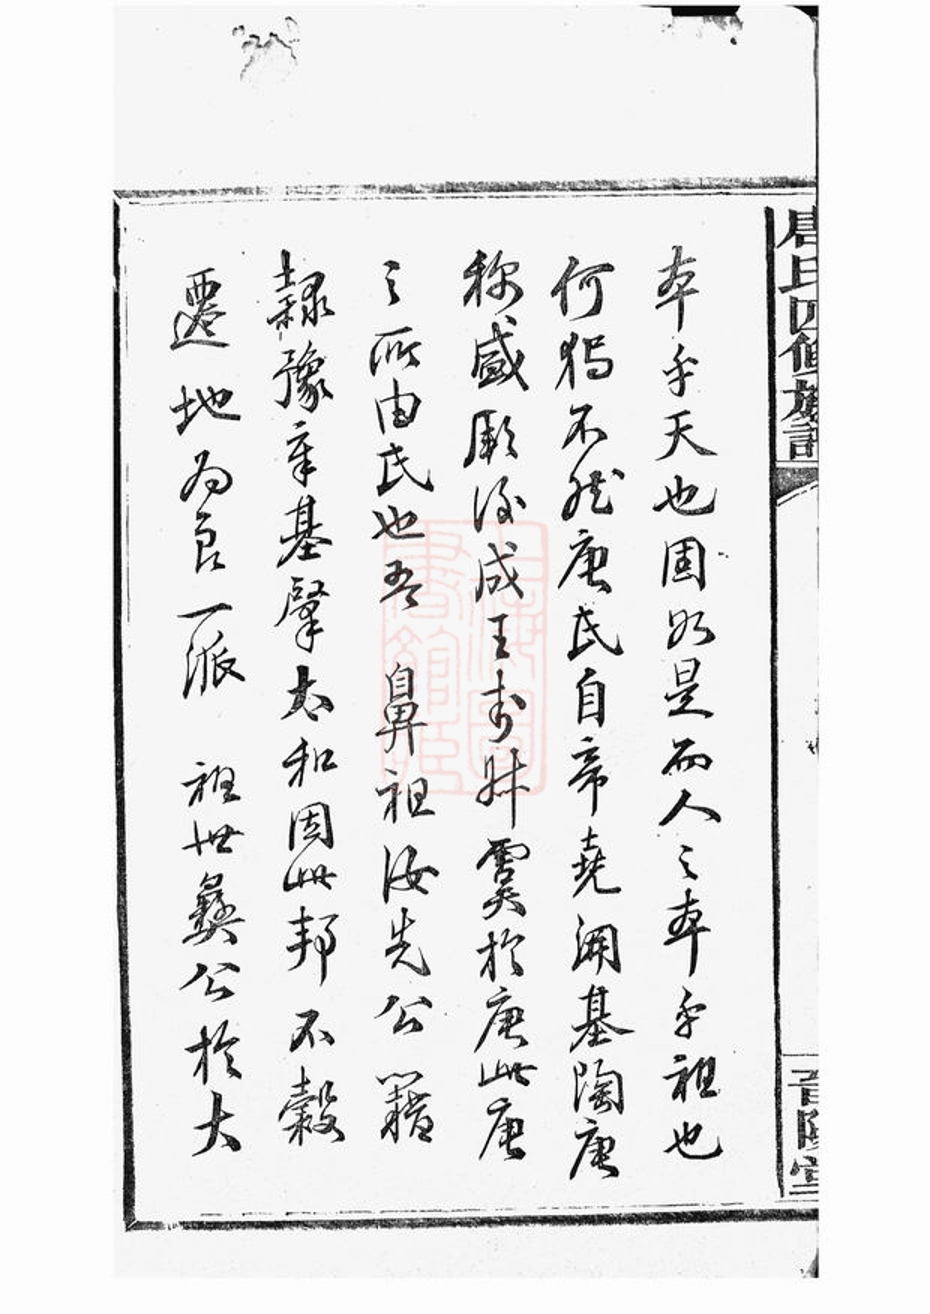 唐氏四修族譜
晋陽堂
本乎天也固如是而人之本乎祖也
何獨不然唐氏自帝堯開基陶唐
稱盛厥後成王封叔虞於唐此唐
之所由氏也吾 鼻祖汝先公籍
隸豫章基肇太和因此邦不穀
遷地為良一派 祖世彝公於大